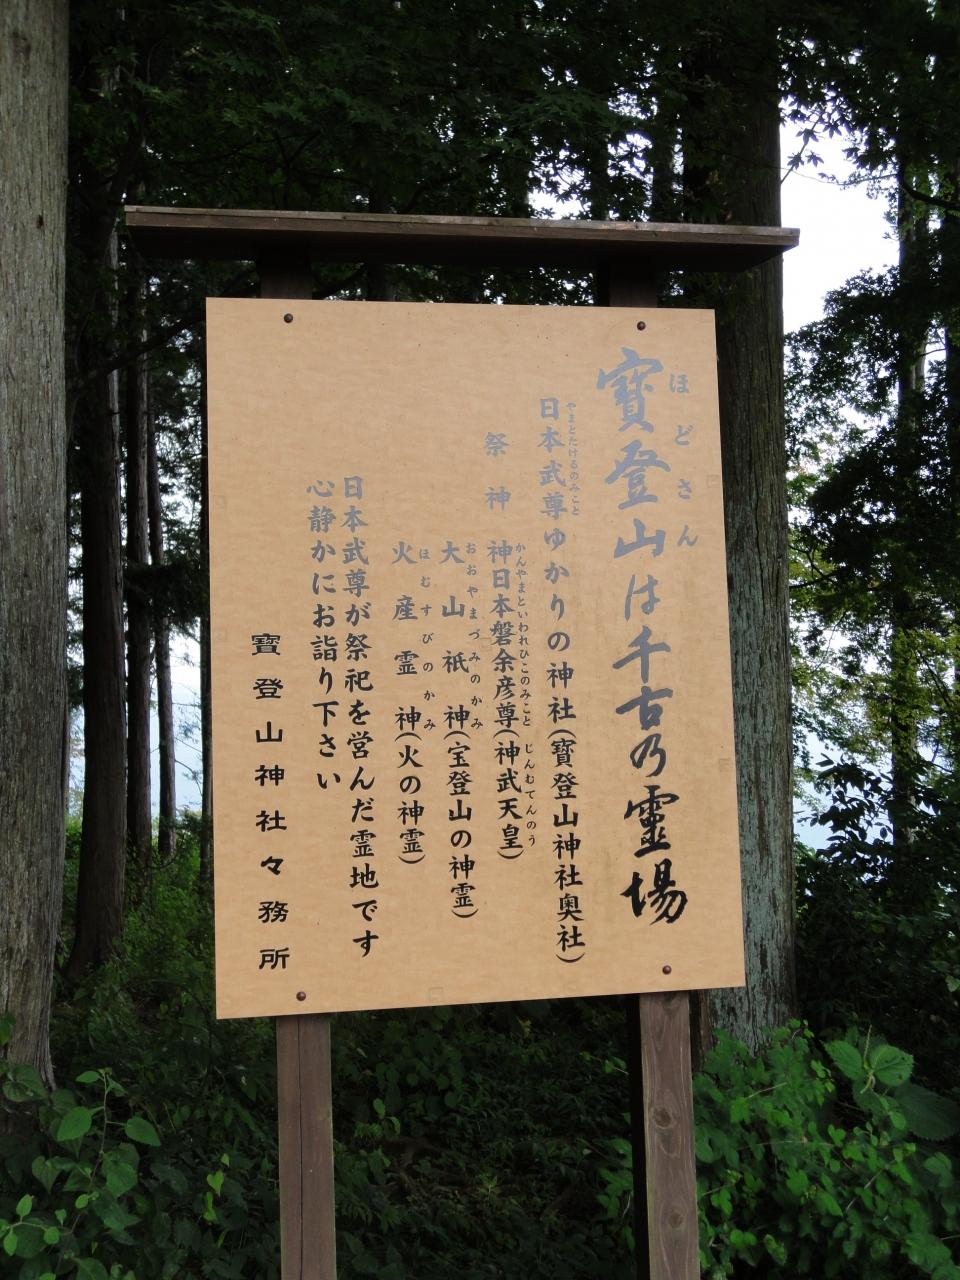 寶登山は千古乃霊場
ほどさん
日本武尊ゆかりの神社(寶登山神社奥社)
やまとたけるのみこと
祭神 神日本磐余彦尊(神武天皇)
かんやまといわれひこのみこと じんむてんのう
大山祇神(宝登山の神霊)
おおやまづみのかみ
火産霊神(火の神霊)
ほむすびのかみ
日本武尊が祭祀を営んだ霊地です
心静かにお詣り下さい
寶登山神社々務所